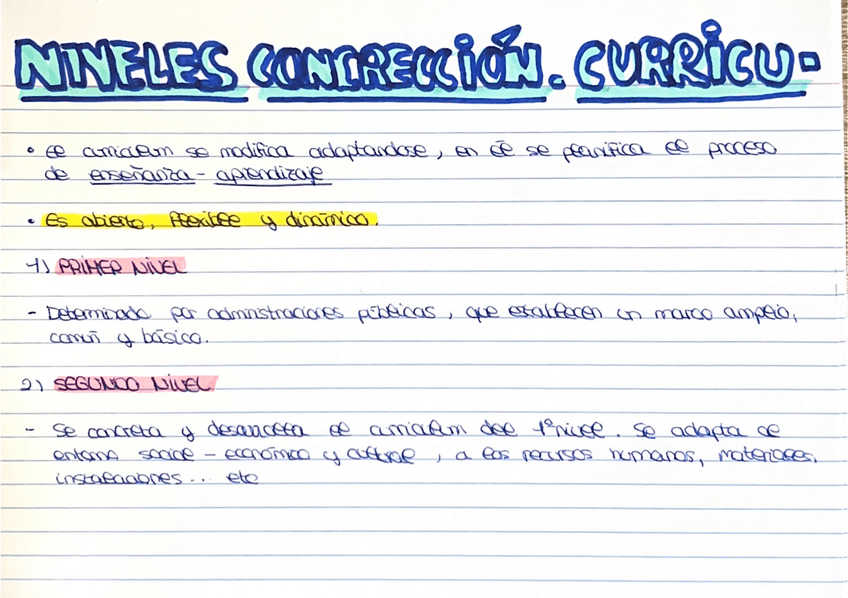 NIVELES CONCRECCIÓN. CURRICU-
• el curriculum se modifica adaptandose, en él se planifica el proceso
de enseñanza - aprendizaje
• Es abierto, flexible y dinámico.
1) PRIMER NIVEL
- Determinado por administraciones públicas, que establecen un marco amplio,
común y básico.
2) SEGUNDO NIVEL
- Se concreta y desarrolla el curriculum del 1º nivel. Se adapta al
entorno social - económico y cultural, a los recursos humanos, materiales,
instalaciones... etc